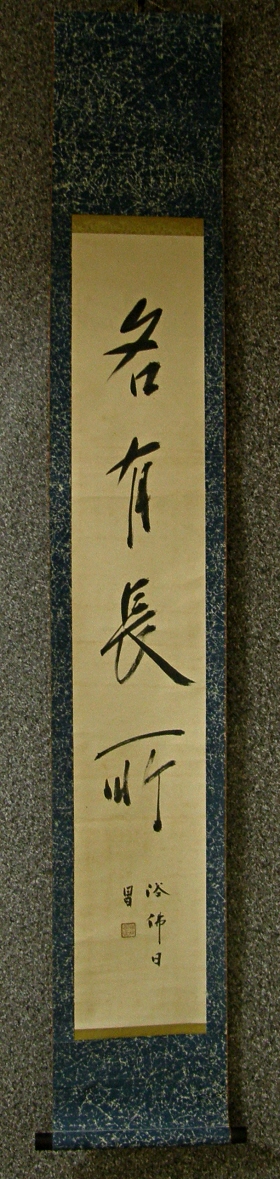 各有長所
浴佛日